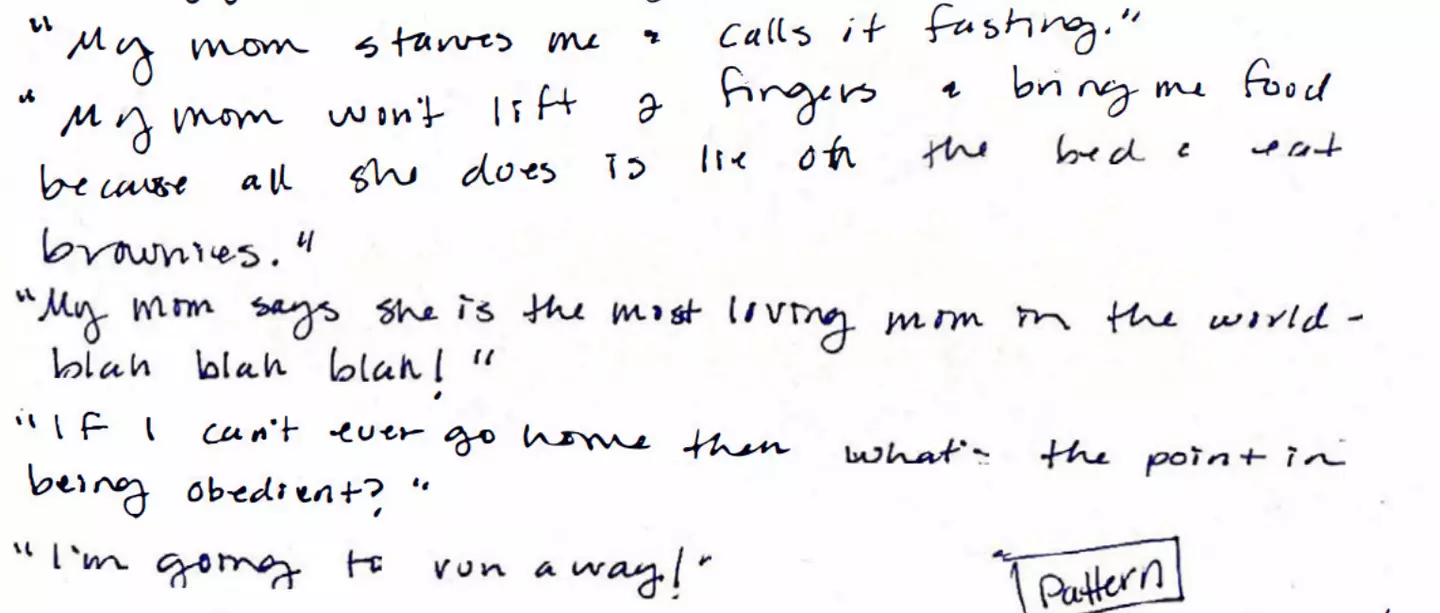 "My mom starves me & calls it fasting."
"My mom won't lift 2 fingers & bring me food
because all she does is lie on the bed & eat
brownies."
"My mom says she is the most loving mom in the world -
blah blah blah!"
"If I can't ever go home then what's the point in
being obedient?"
"I'm going to run away!"
Pattern